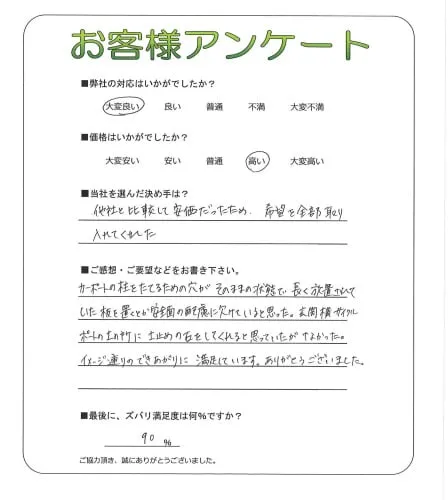 お客様アンケート
■弊社の対応はいかがでしたか？
大変良い 良い 普通 不満 大変不満
■価格はいかがでしたか？
大変安い 安い 普通 高い 大変高い
■当社を選んだ決め手は？
他社と比較して安価だったため。希望を全部取り
入れてくれた
■ご感想・ご要望などをお書き下さい。
カーポートの柱をたてるための穴がそのままの状態で長く放置されて
いた 板を置くとか安全面の配慮に欠けていると思った。玄関横サイクル
ポートの土の所に土止めの石をしてくれると思っていたがなかった。
イメージ通りのできあがりに満足しています。ありがとうございました。
■最後に、ズバリ満足度は何%ですか？
90 %
ご協力頂き、誠にありがとうございました。